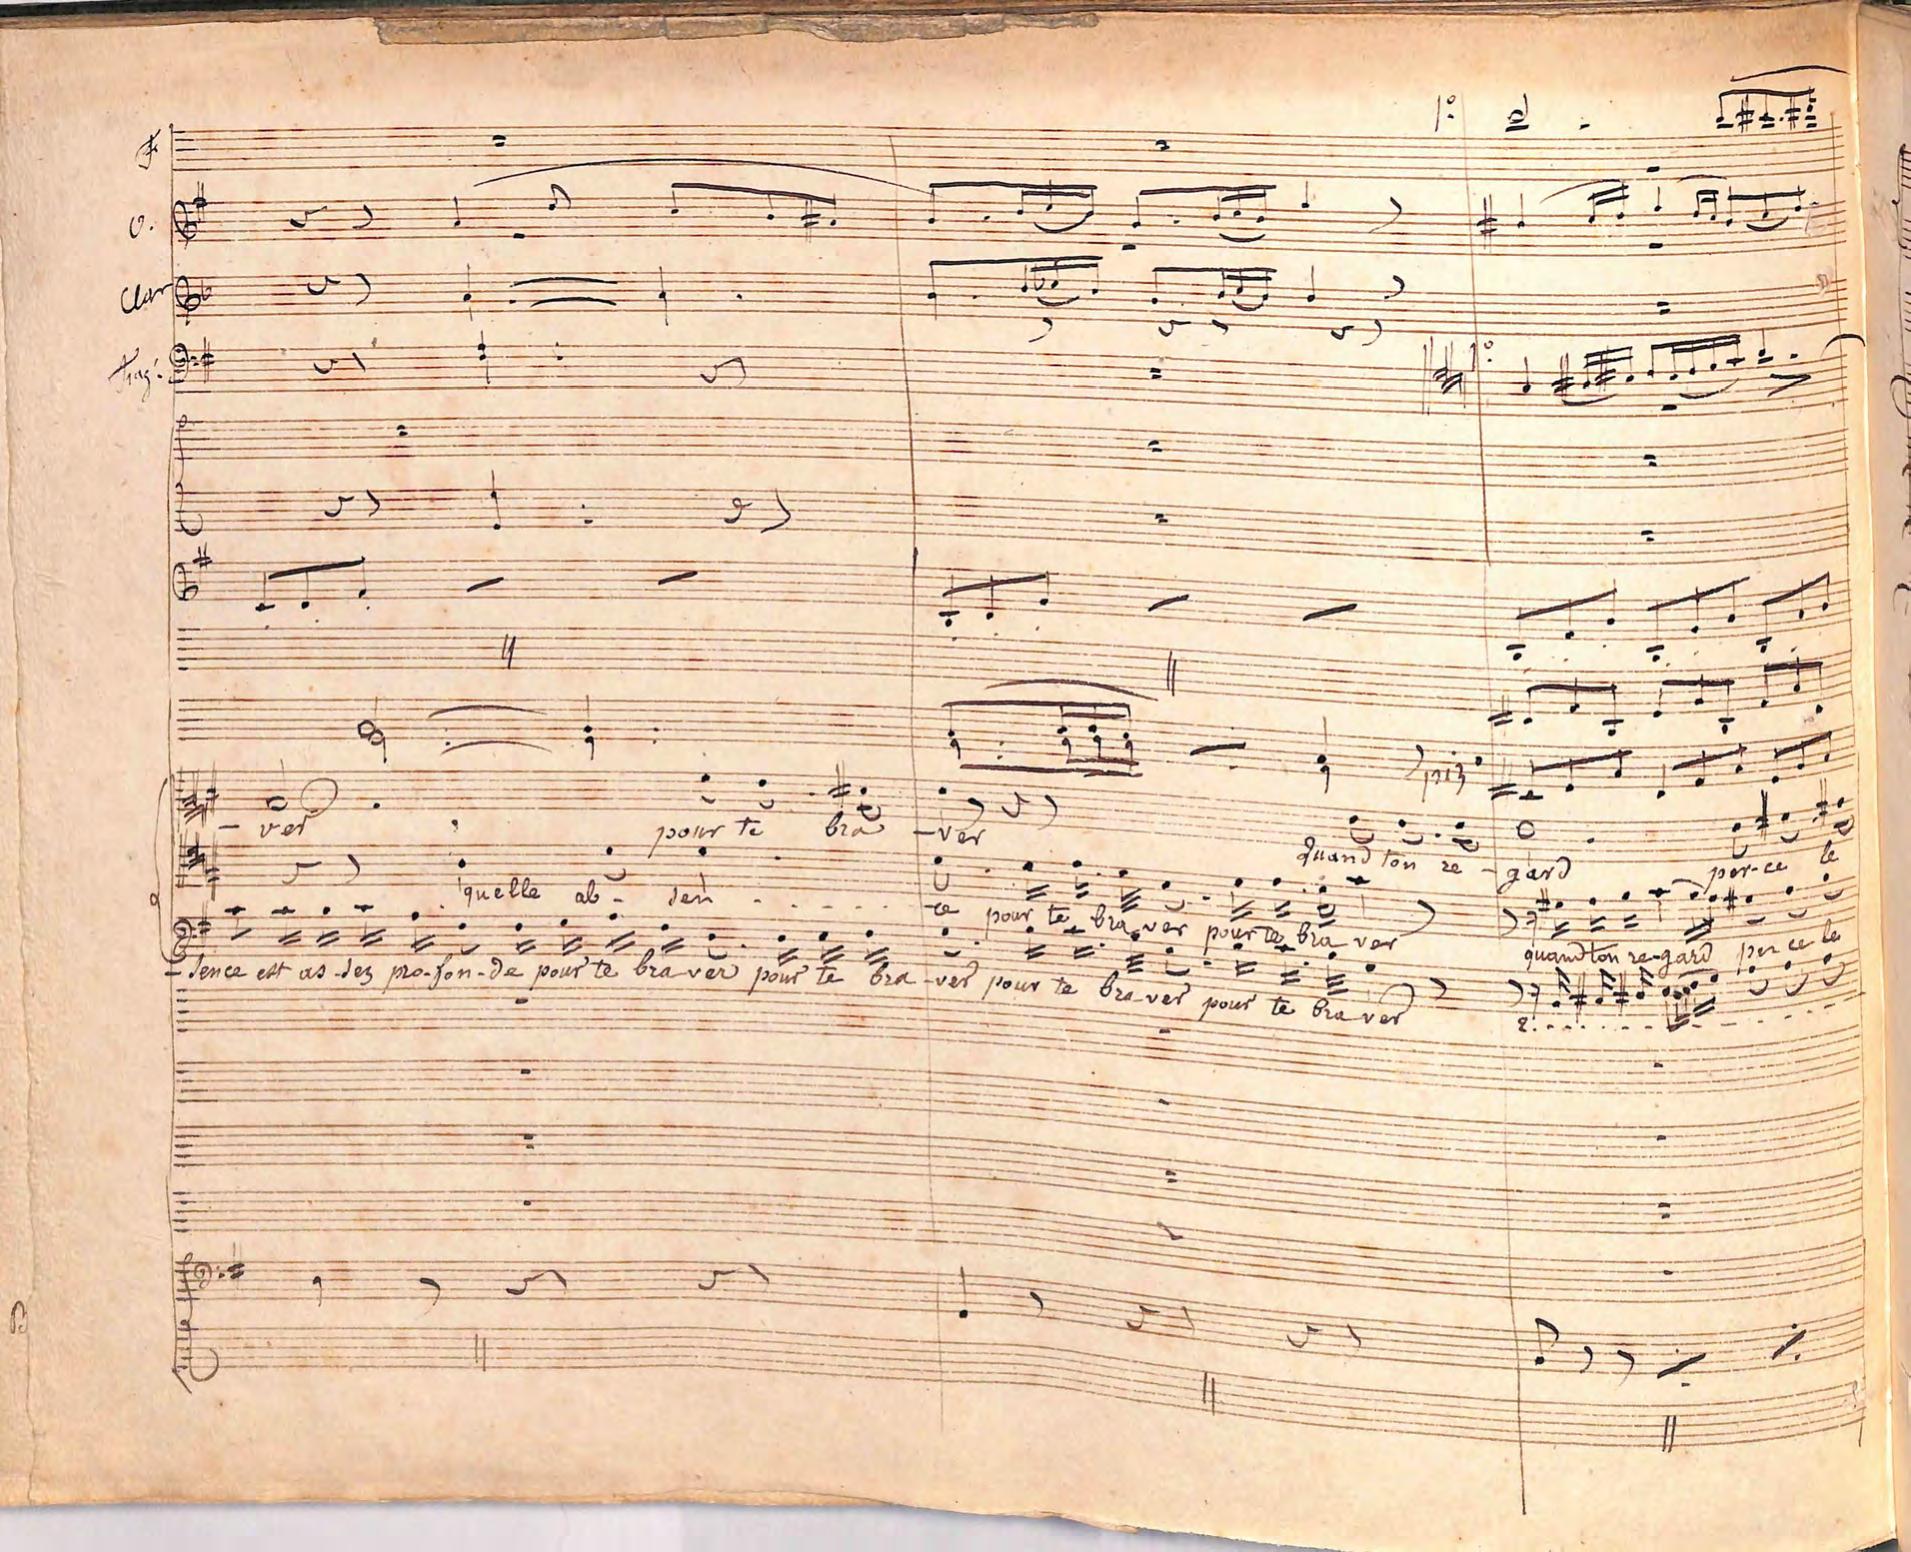 1º
F
O.
Clar
Fag:
1º
piz
- ver pour te bra - ver quand ton re - gard per-ce le
quelle ab - sen - - - - - ce pour te bra ver pour te bra ver quand ton re-gard per ce le
- sence est as-sez pro-fon-de pour te bra ver pour te bra - ver pour te bra-ver pour te bra ver